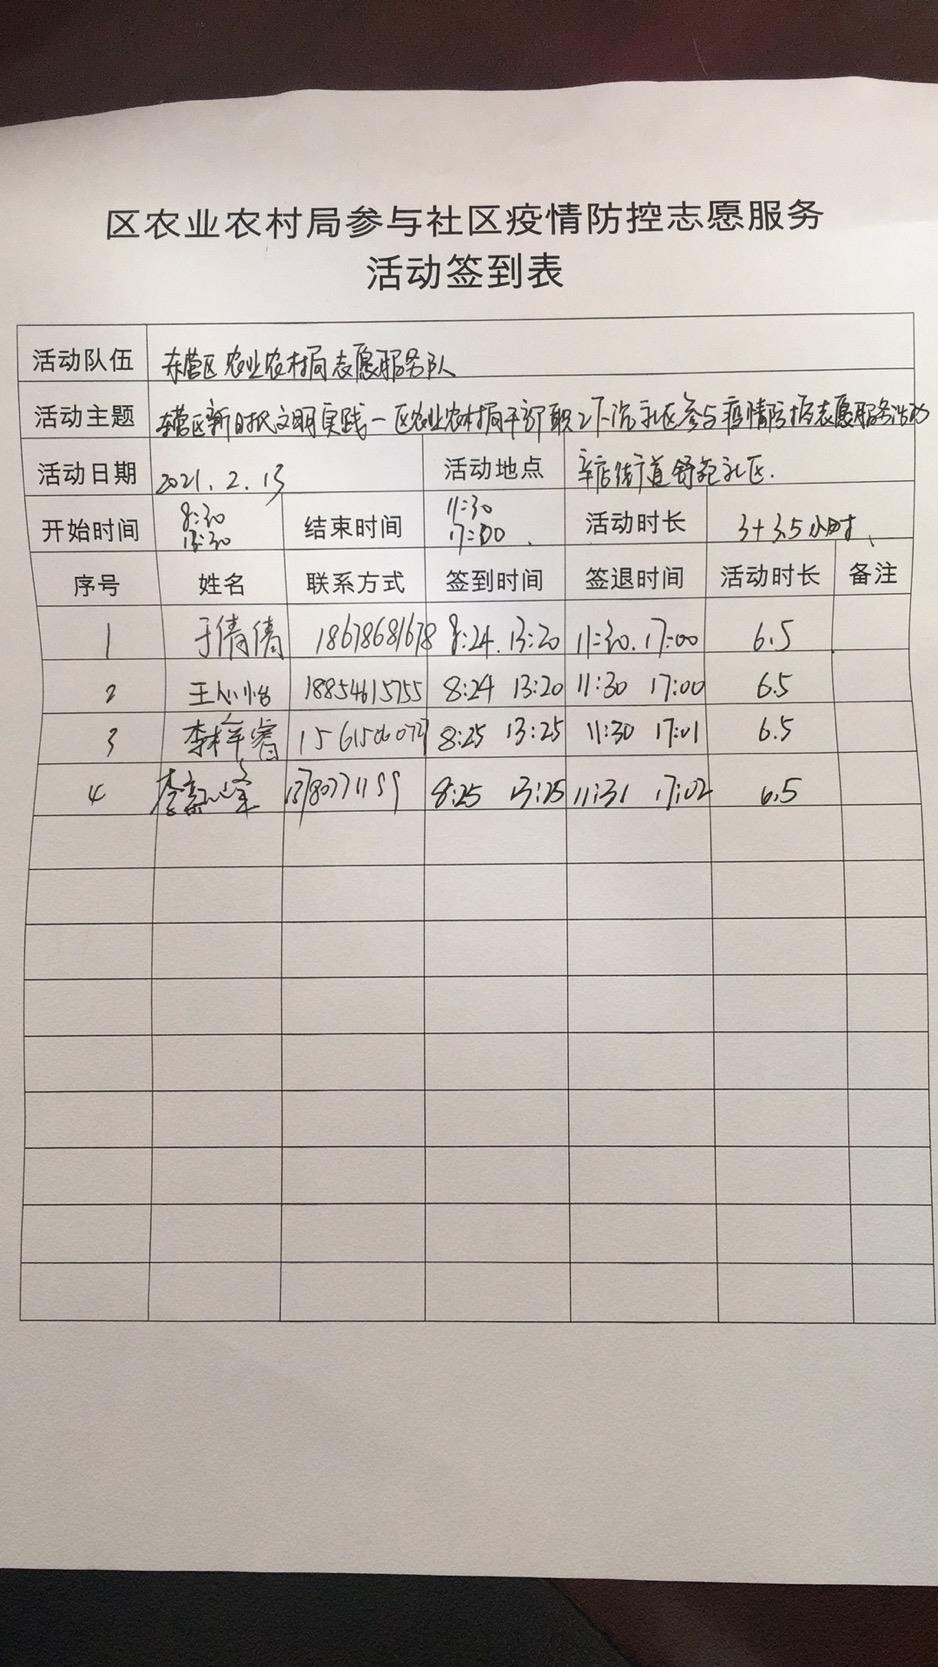 区农业农村局参与社区疫情防控志愿服务
活动签到表
活动队伍 东营区农业农村局志愿服务队
活动主题 东营区新时代文明实践一区农业农村局干部职工下沉社区参与疫情防控志愿服务活动
活动日期 2021.2.13 活动地点 辛店街道舒苑社区.
开始时间 8:30 13:30 结束时间 11:30 17:00 活动时长 3+3.5小时
序号 姓名 联系方式 签到时间 签退时间 活动时长 备注
1 于倩倩 18678681678 8:24. 13:20 11:30. 17:00 6.5
2 王心怡 18854615755 8:24 13:20 11:30 17:00 6.5
3 李梓睿 8:25 13:25 11:30 17:01 6.5
4 李 13780771199 8:25 13:25 11:31 17:02 6.5